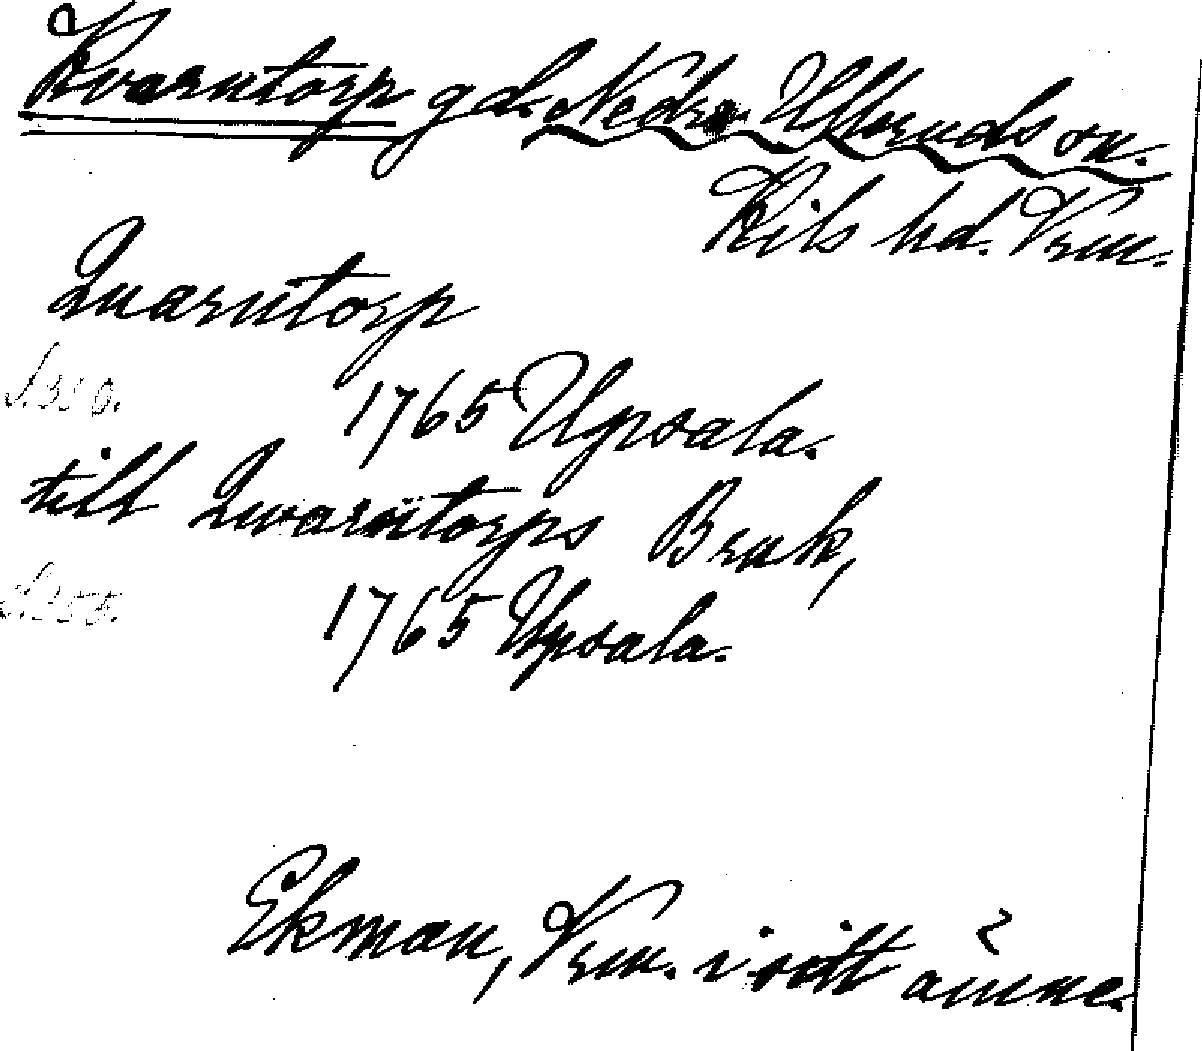 Kvarntorp gd. Nedre Ulleruds sn.
Kils hd. Vrm.
Quarntorp
S. 310.
1765 Upsala.
till Qwarntorps Bruk,
1765 Upsala.
Ekman, Vrm. i sitt ämne.